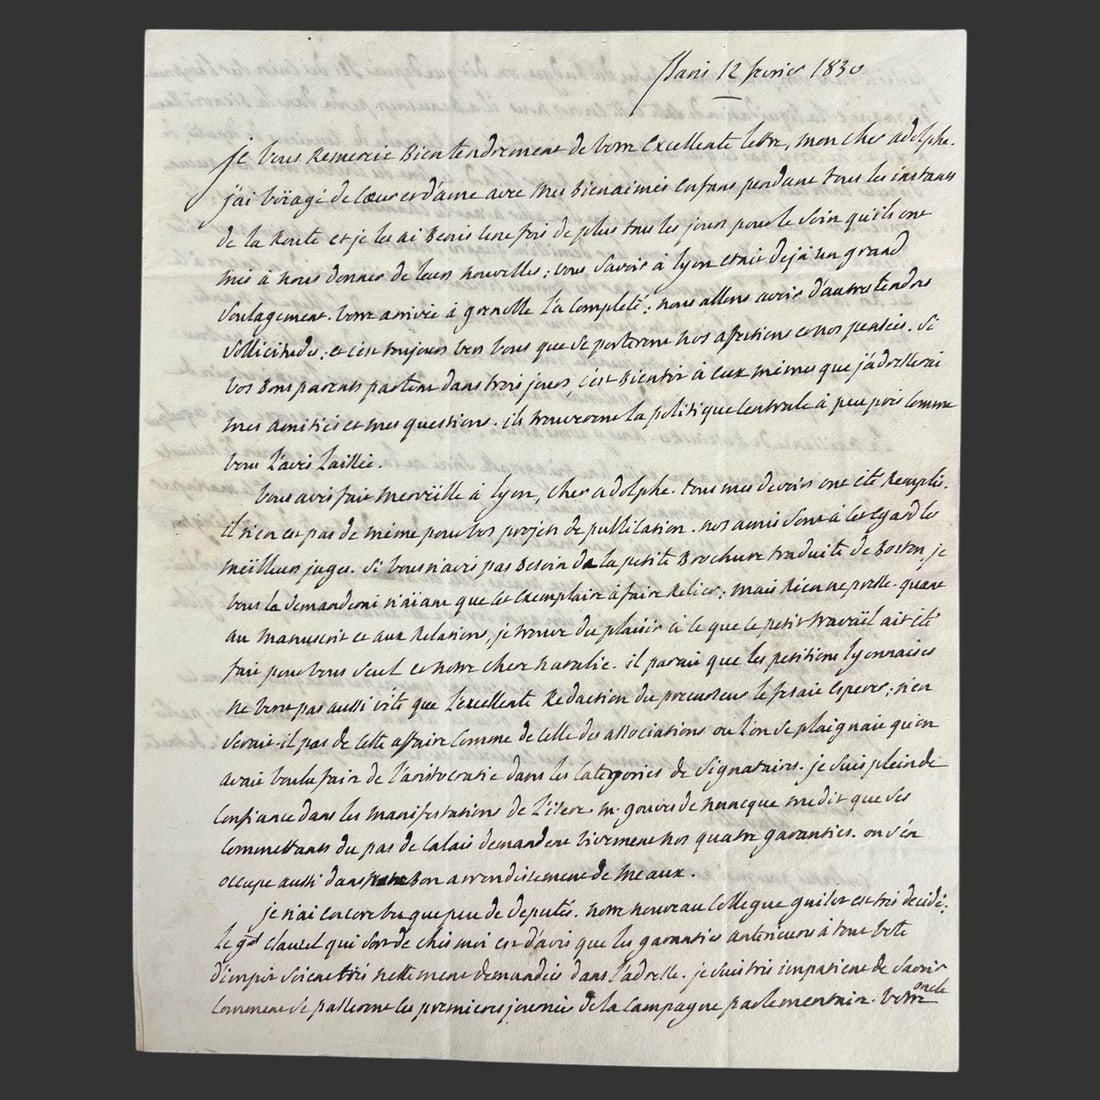 Paris 12 fevrier 1830
je vous remercie bien tendrement de votre excellente lettre, mon cher adolphe.
j'ai voïagé de coeur et d'ame avec mes bienaimés enfans pendant tous les instans
de la route et je les ai benis une fois de plus tous les jours pour le soin qu'ils ont
mis à nous donner de leurs nouvelles; vous savoir à lyon etait deja un grand
soulagement. votre arrivée à grenoble l'a completé; nous allons avoir d'autres tendres
sollicitudes, et c'est toujours vers vous que se porteront nos affections et nos pensées. si
vos bons parents partent dans trois jours c'est bientôt à eux mêmes que j'adresserai
mes amitiés et mes questions. ils trouveront la politique centrale à peu près comme
vous l'avés laissée.
vous avés fait merveille à lyon, cher adolphe. tous mes devoirs ont été remplis.
il n'en est pas de même pour vos projets de publication. nos amis sont à cet egard les
meilleurs juges. si vous n'avés pas besoin de la petite brochure traduite de Boston je
vous la demanderai n'aïant que cet exemplaire à faire relier; mais rien ne presse. quant
au manuscrit et aux relations, je trouve du plaisir à ce que ce petit travail ait été
fait pour vous seul et notre chere natalie. il parait que les petitions lyonnaises
ne vont pas aussi vite que l'excellente redaction du precurseur le fesait esperer; n'en
serait-il pas de cette affaire comme de celle des associations ou l'on se plaignait qu'on
avait voulu faire de l'aristocratie dans les categories de signataires. je suis plein de
confiance dans les manifestations de l'isere. mr. gouvé de nuncque me dit que ses
commettants du pas de calais demandent vivement nos quatre garanties. on s'en
occupe aussi dans bon arrondissement de meaux.
je n'ai encore vu que peu de deputés. notre nouveau collegue guizot est très decidé;
le gal clauzel qui sort de chés moi est d'avis que les garanties anterieures à tout vote
d'impot soient très nettement demandées dans l'adresse. je suis très impatient de savoir
comment se passeront les premieres journées de la campagne parlementaire. votre oncle